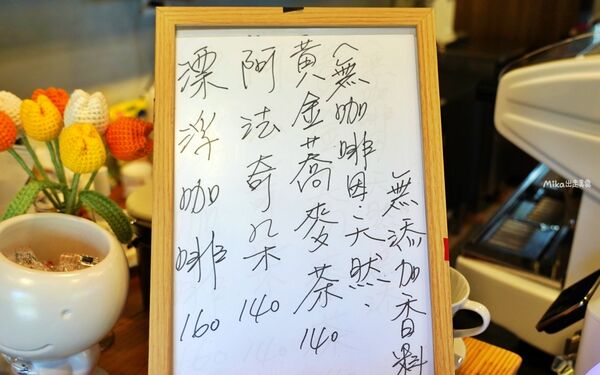 漂浮咖啡 160
阿法奇朵 140
黃金蕎麥茶 140
(無咖啡因:天然:
無添加香料
Mika出走美食